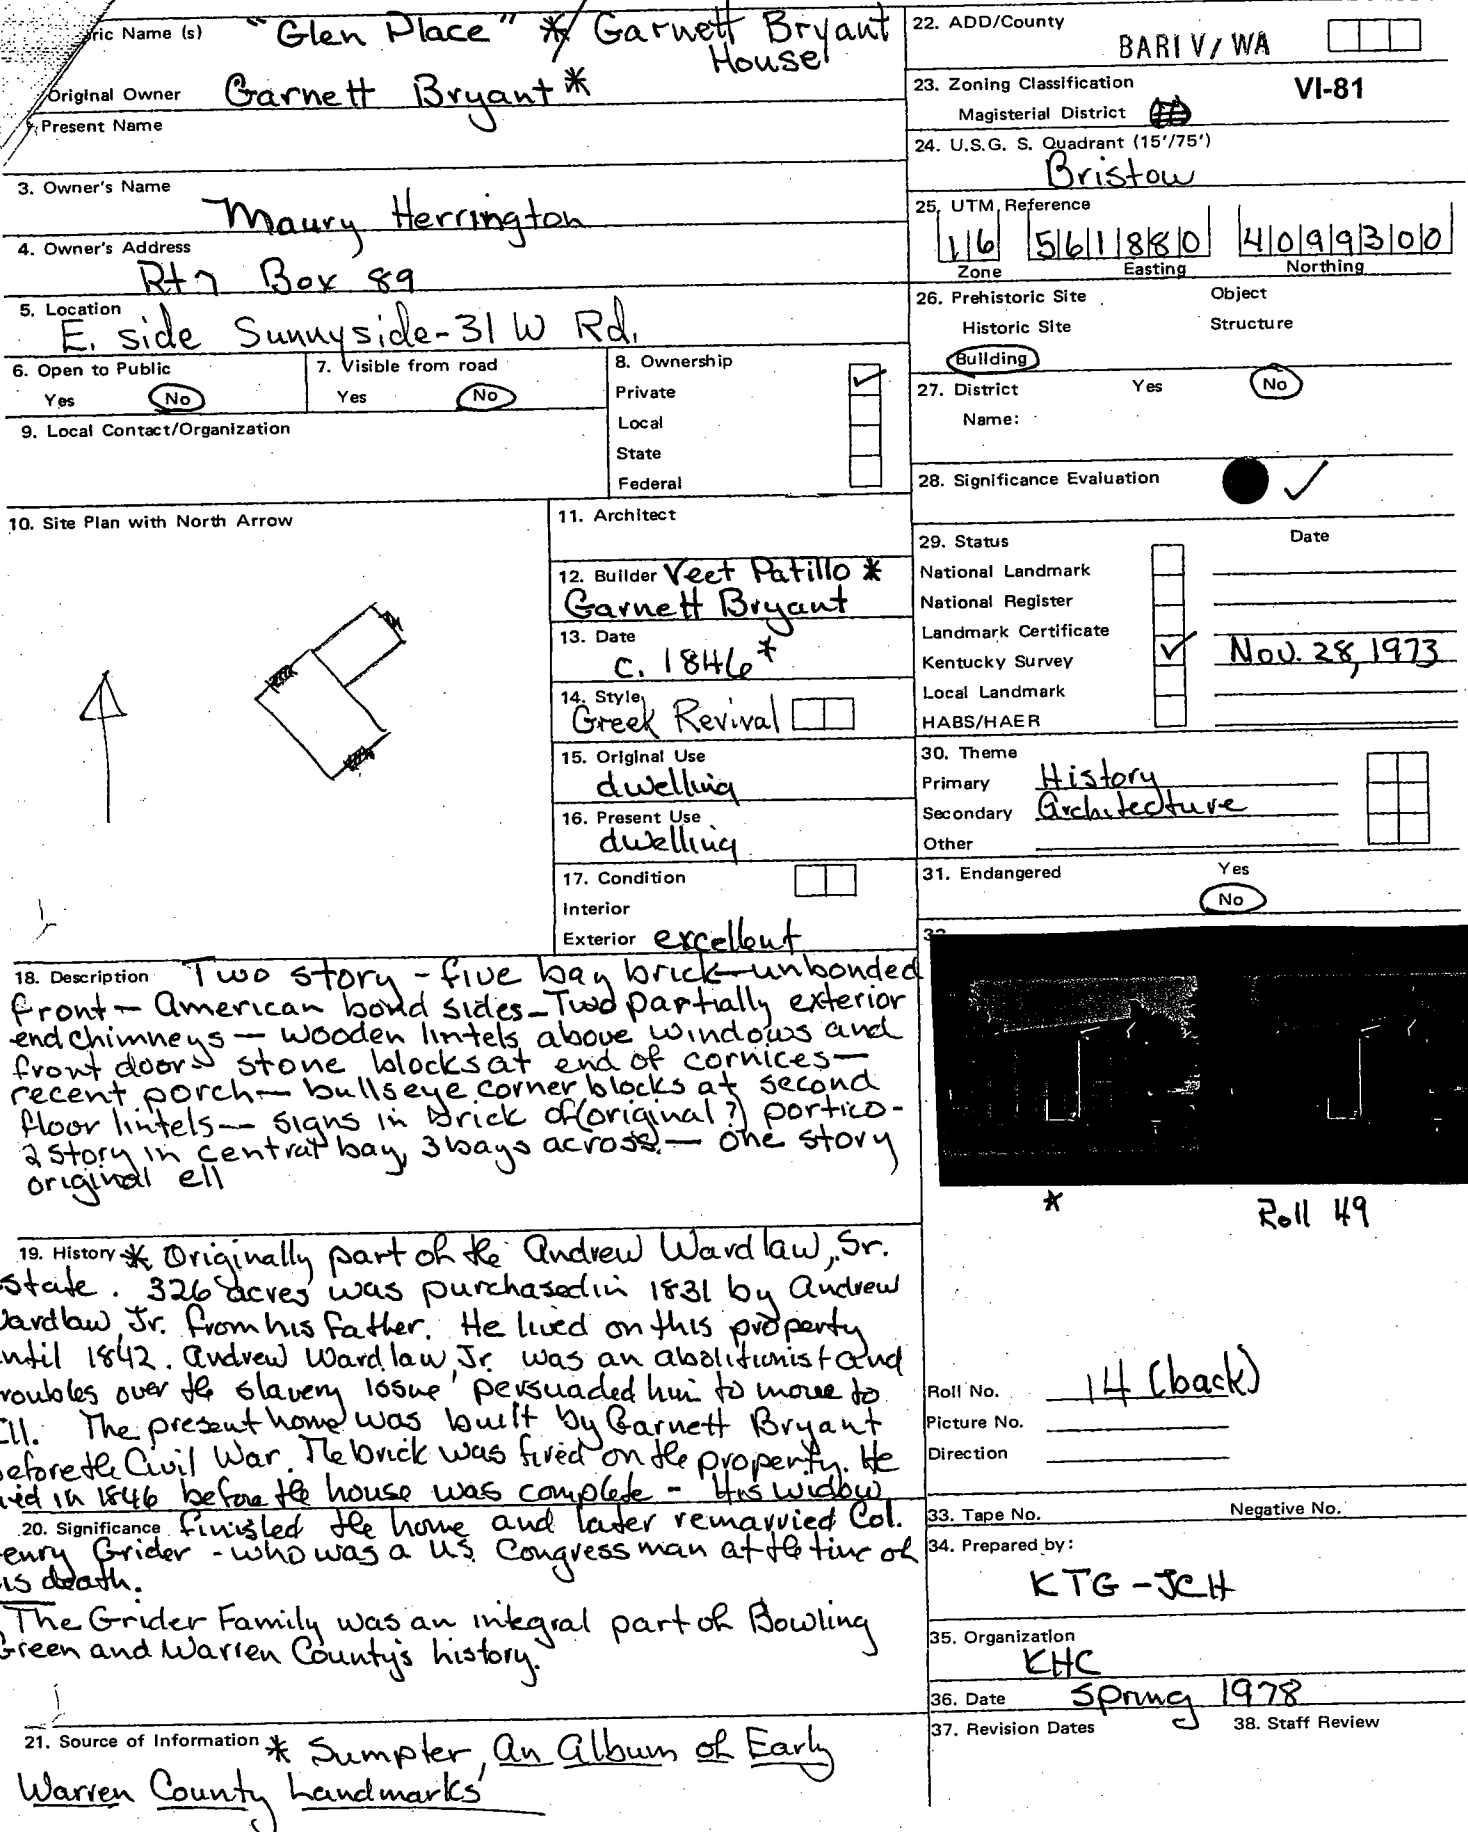 ric Name (s) "Glen Place" * Garnett Bryant
House
Original Owner Garnett Bryant *
Present Name
3. Owner's Name
Maury Herrington
4. Owner's Address
Rt 7 Box 89
5. Location
E. side Sunnyside-31 W Rd.
6. Open to Public
Yes No
7. Visible from road
Yes No
8. Ownership
Private ✓
Local
State
Federal
9. Local Contact/Organization
10. Site Plan with North Arrow
11. Architect
12. Builder Veet Patillo *
Garnett Bryant
13. Date
c. 1846 *
14. Style
Greek Revival
15. Original Use
dwelling
16. Present Use
dwelling
17. Condition
Interior
Exterior excellent
18. Description Two story - five bay brick - unbonded
front - American bond sides - Two partially exterior
end chimneys - wooden lintels above windows and
front door - stone blocks at end of cornices -
recent porch - bullseye corner blocks at second
floor lintels - signs in brick of (original?) portico -
2 story in central bay, 3 bays across - one story
original ell
19. History * Originally part of the Andrew Wardlaw, Sr.
state. 326 acres was purchased in 1831 by Andrew
ardlaw, Jr. from his father. He lived on this property
ntil 1842. Andrew Wardlaw Jr. was an abolitionist and
roubles over the slavery issue persuaded him to move to
Ill. The present home was built by Garnett Bryant
efore the Civil War. The brick was fired on the property. He
ied in 1846 before the house was complete - His widow
20. Significance finished the home and later remarried Col.
enry Grider - who was a U.S. Congressman at the time of
is death.
The Grider Family was an integral part of Bowling
Green and Warren County's history.
21. Source of Information * Sumpter, An Album of Early
Warren County Landmarks
22. ADD/County
BARIV/WA
23. Zoning Classification VI-81
Magisterial District
24. U.S.G. S. Quadrant (15'/75')
Bristow
25. UTM Reference
16 561880 4099300
Zone Easting Northing
26. Prehistoric Site Object
Historic Site Structure
Building
27. District Yes No
Name:
28. Significance Evaluation ✓
29. Status Date
National Landmark
National Register
Landmark Certificate
Kentucky Survey ✓ Nov. 28, 1973
Local Landmark
HABS/HAER
30. Theme
Primary History
Secondary Architecture
Other
31. Endangered Yes
No
*
Roll 49
Roll No. 14 (back)
Picture No.
Direction
33. Tape No. Negative No.
34. Prepared by:
KTG - JCH
35. Organization
KHC
36. Date Spring 1978
37. Revision Dates 38. Staff Review